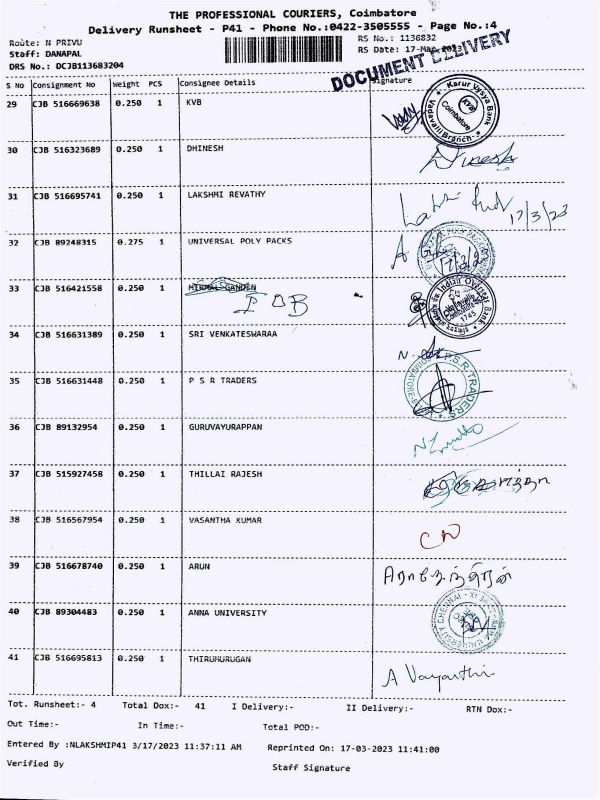 THE PROFESSIONAL COURIERS, Coimbatore
Delivery Runsheet - P41 - Phone No.:0422-3505555 - Page No.:4
Route: N PRIVU
RS No.: 1136832
Staff: DANAPAL
RS Date: 17-Mar-2023
DRS No.: DCJB113683204
DOCUMENT DELIVERY
S No Consignment No Weight PCS Consignee Details Signature
29 CJB 516669638 0.250 1 KVB
Karur Vysya Bank KVB Coimbatore Vadavalli Branch
30 CJB 516323689 0.250 1 DHINESH
Dinesh
31 CJB 516695741 0.250 1 LAKSHMI REVATHY
17/3/23
32 CJB 89248315 0.275 1 UNIVERSAL POLY PACKS
17/3/23
33 CJB 516421558 0.250 1 NIRMAL GANDEN
IOB
Indian Overseas Bank
1745
34 CJB 516631389 0.250 1 SRI VENKATESWARAA
35 CJB 516631448 0.250 1 P S R TRADERS
P.S.R.TRADERS COIMBATORE
36 CJB 89132954 0.250 1 GURUVAYURAPPAN
37 CJB 515927458 0.250 1 THILLAI RAJESH
38 CJB 516567954 0.250 1 VASANTHA KUMAR
39 CJB 516678740 0.250 1 ARUN
40 CJB 89304483 0.250 1 ANNA UNIVERSITY
CHENNAI
41 CJB 516695813 0.250 1 THIRUMURUGAN
Tot. Runsheet:- 4 Total Dox:- 41 I Delivery:- II Delivery:- RTN Dox:-
Out Time:- In Time:- Total POD:-
Entered By :NLAKSHMIP41 3/17/2023 11:37:11 AM Reprinted On: 17-03-2023 11:41:00
Verified By Staff Signature